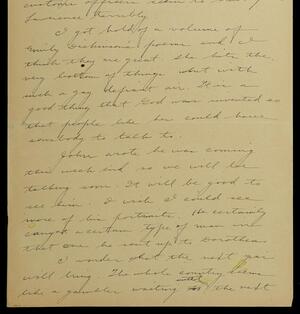 customs officers seem to
terribly
I got hold of a volume of
Emily Dickinson's poems and I
think they are great. She hits the
very bottom of things what with
such a gay defiant air. It is a
good thing that God was invented so
that people like her could have
somebody to talk to.
John wrote he was coming
this week end so we will be
talking soon. It will be good to
see him. I wish I could see
more of his portraits. He certainly
caught a certain type of man in
that one he sent up to Dorothea.
I wonder what the next year
will bring. The whole country seems
like a gambler waiting until the next